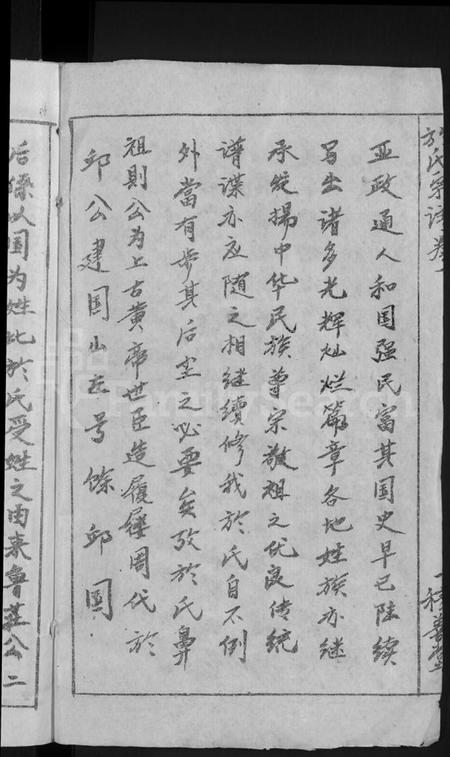 於氏宗譜卷一
一積善堂
亚政通人和国强民富其国史早已陆续
写出诸多光辉灿烂篇章各地姓族亦继
承纪揚中华民族尊宗敬祖之优良传统
谱谍亦应随之相继續修我於氏自不例
外當有步其后尘之必要矣攷於氏鼻
祖則公为上古黄帝世臣造履屦周代於
邱公建国山左号馀邱国
后僚以国为姓此於氏受姓之由来鲁莊公二
FamilySearch